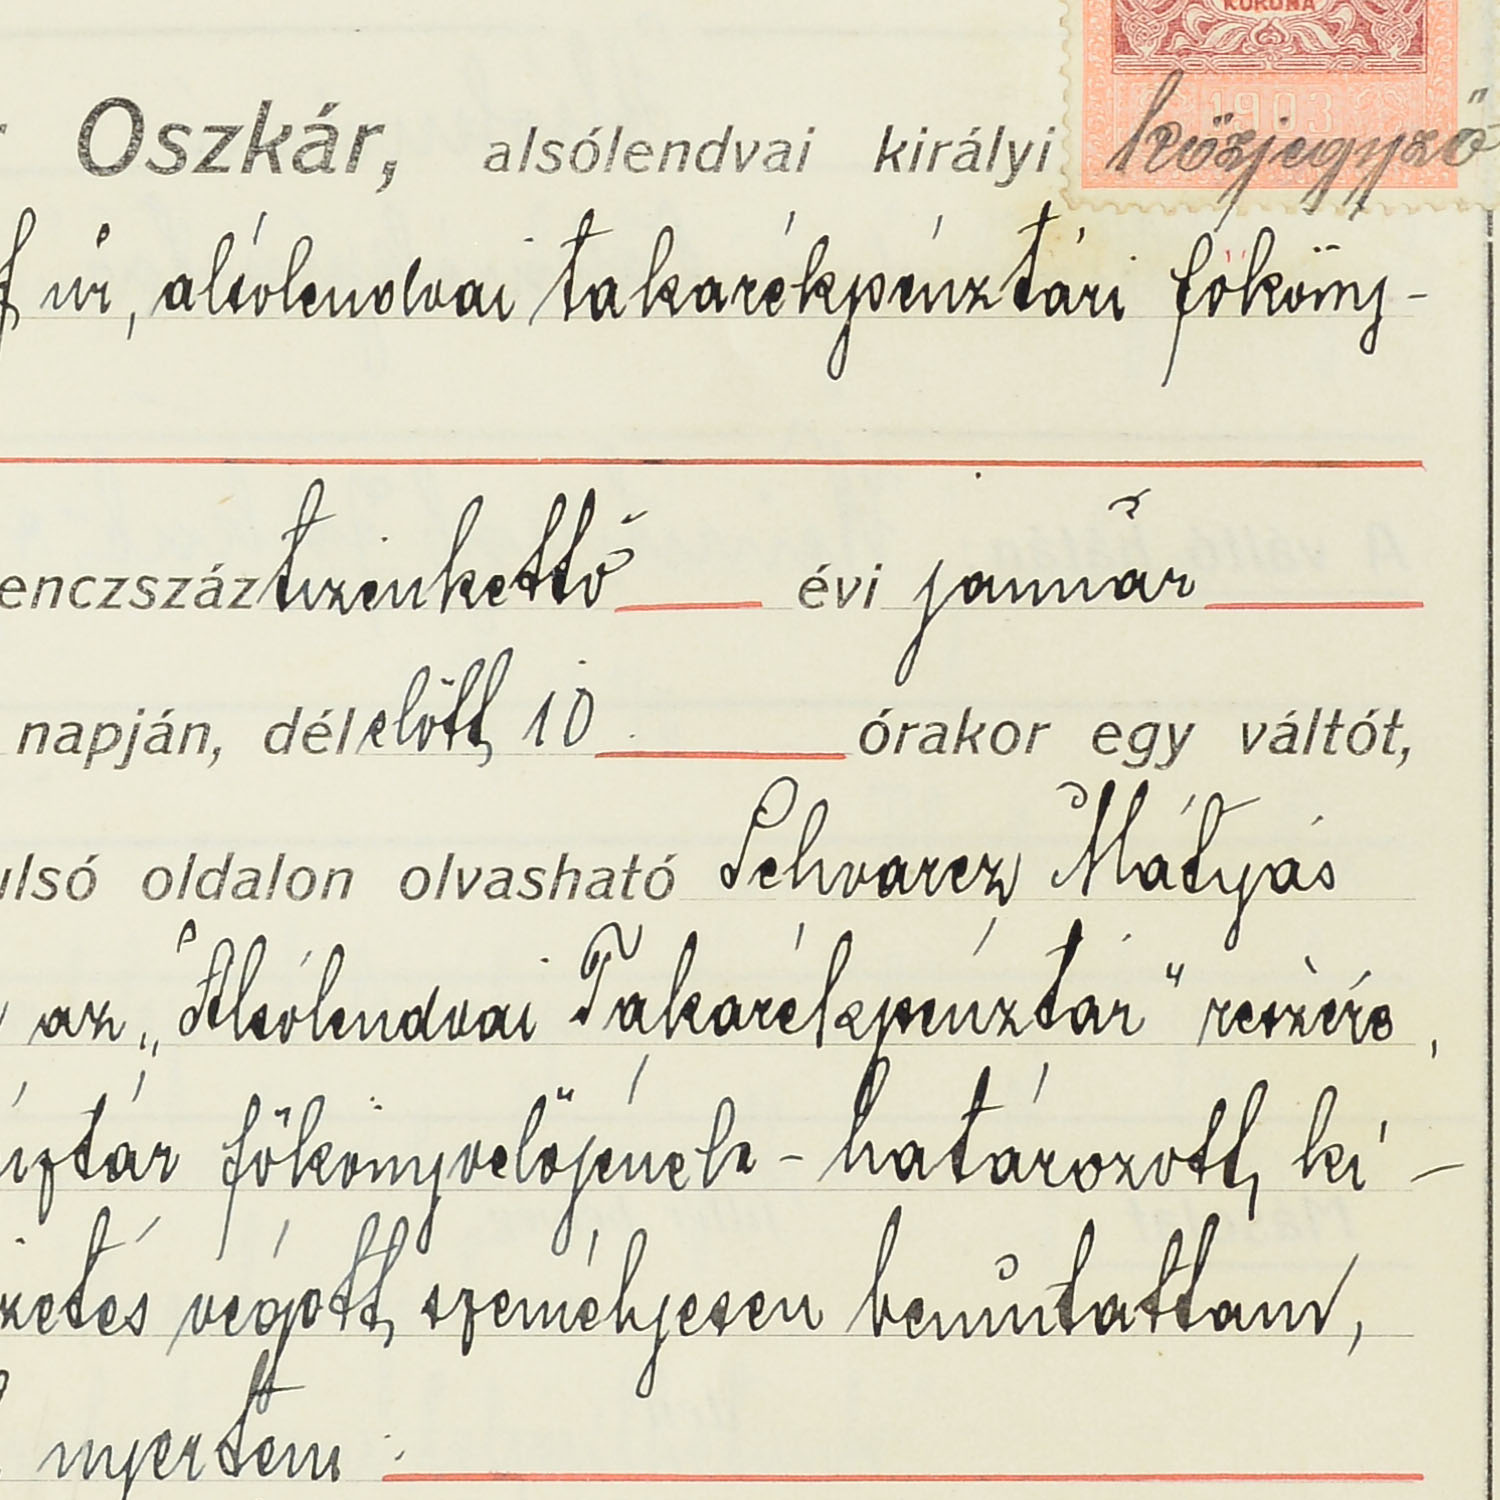 KORONA
1903
Oszkár, alsólendvai királyi közjegyző
úr, alsólendvai takarékpénztári főköny-
enczszáztizenkettő évi január
napján, délelőtt 10 órakor egy váltót,
ulsó oldalon olvasható Schvarcz Mátyás
az „Alsólendvai Takarékpénztár" részére,
főkönyvelőjének - határozott ki-
zetés végett személyesen bemutattam,
nyertem: